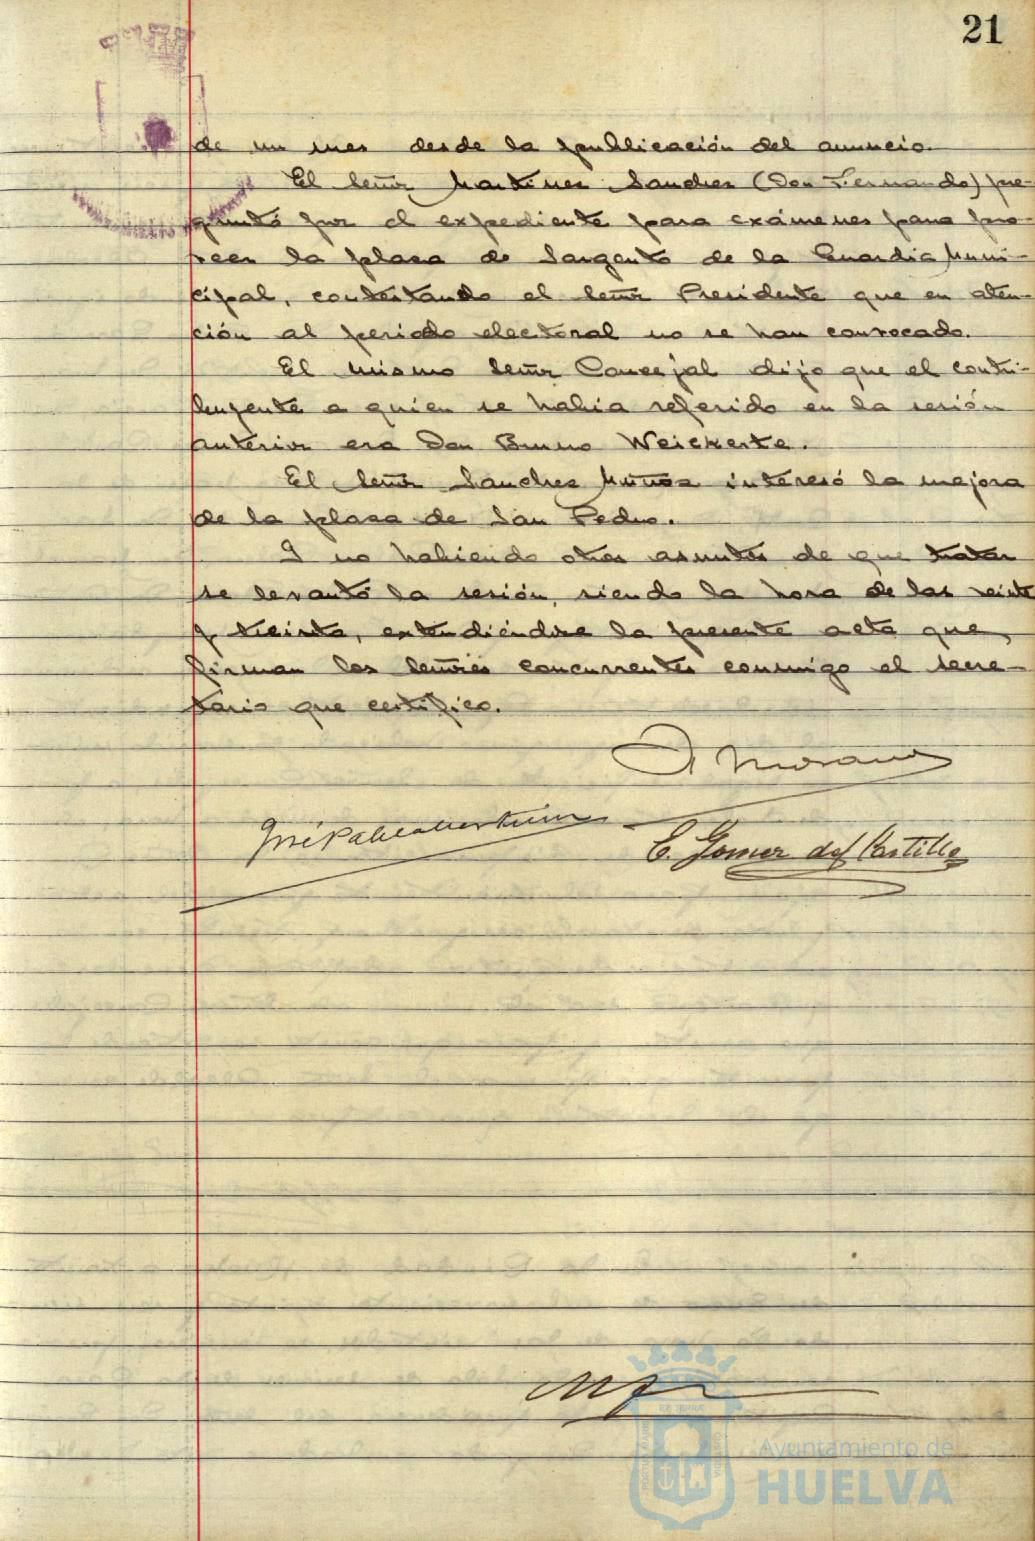 21
de un mes desde la publicación del anuncio.
El Señor Martinez Sanchez (Don Fernando) pre-
guntó por el expediente para exámenes para pro-
veer la plaza de Sargento de la Guardia Muni-
cipal, contestando el Señor Presidente que en aten-
ción al periodo electoral no se han convocado.
El mismo Señor Concejal dijo que el contri-
buyente a quien se habia referido en la sesión
anterior era Don Bruno Weickerte.
El Señor Sanchez Muñoz interesó la mejora
de la plaza de San Pedro.
I no habiendo otros asuntos de que tratar
se levantó la sesión, siendo la hora de las veinte
y treinta, extendiéndose la presente acta que
firman los Señores concurrentes conmigo el secre-
tario que certifico.
E. Gomez del Castillo
Ayuntamiento de
HUELVA